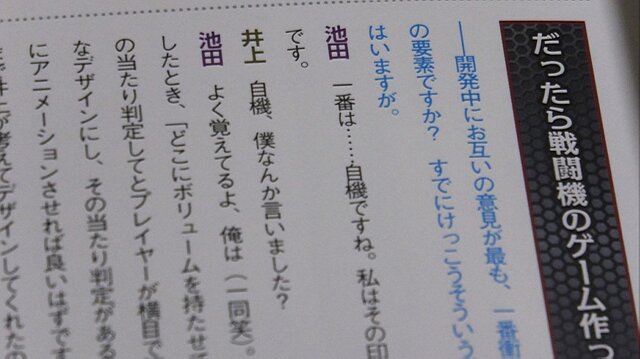 だったら戦闘機のゲーム作っ
――開発中にお互いの意見が最も、一番衝
の要素ですか？　すでにけっこうそういう
はいますが。
池田　一番は……自機ですね。私はその印
です。
井上　自機、僕なんか言いました？
池田　よく覚えてるよ、俺は（一同笑）。
したとき、「どこにボリュームを持たせて
の当たり判定してとプレイヤーが横目で
なデザインにし、その当たり判定がある
にアニメーションさせれば良いはずです
が考えてデザインしてくれたの